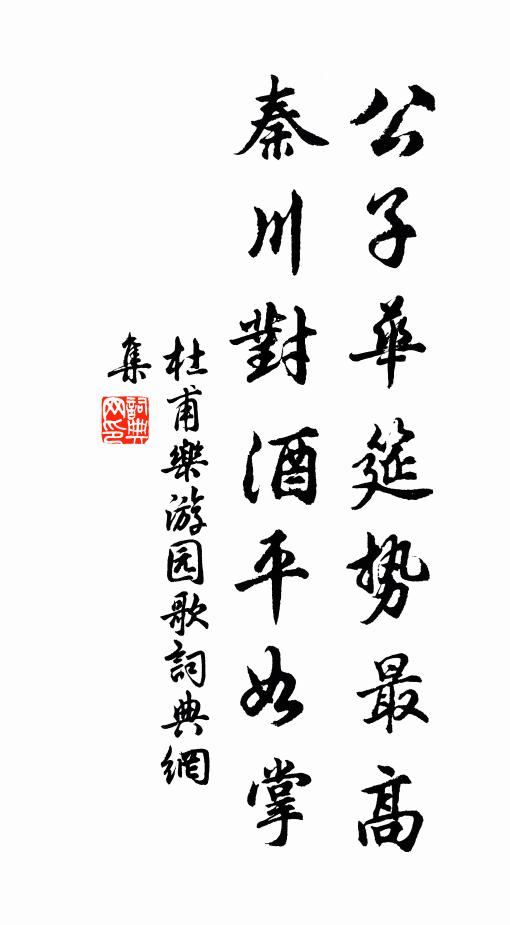 公子華筵势最高
秦川對酒平如掌
杜甫樂游园歌詞典網
集
詞典
网印